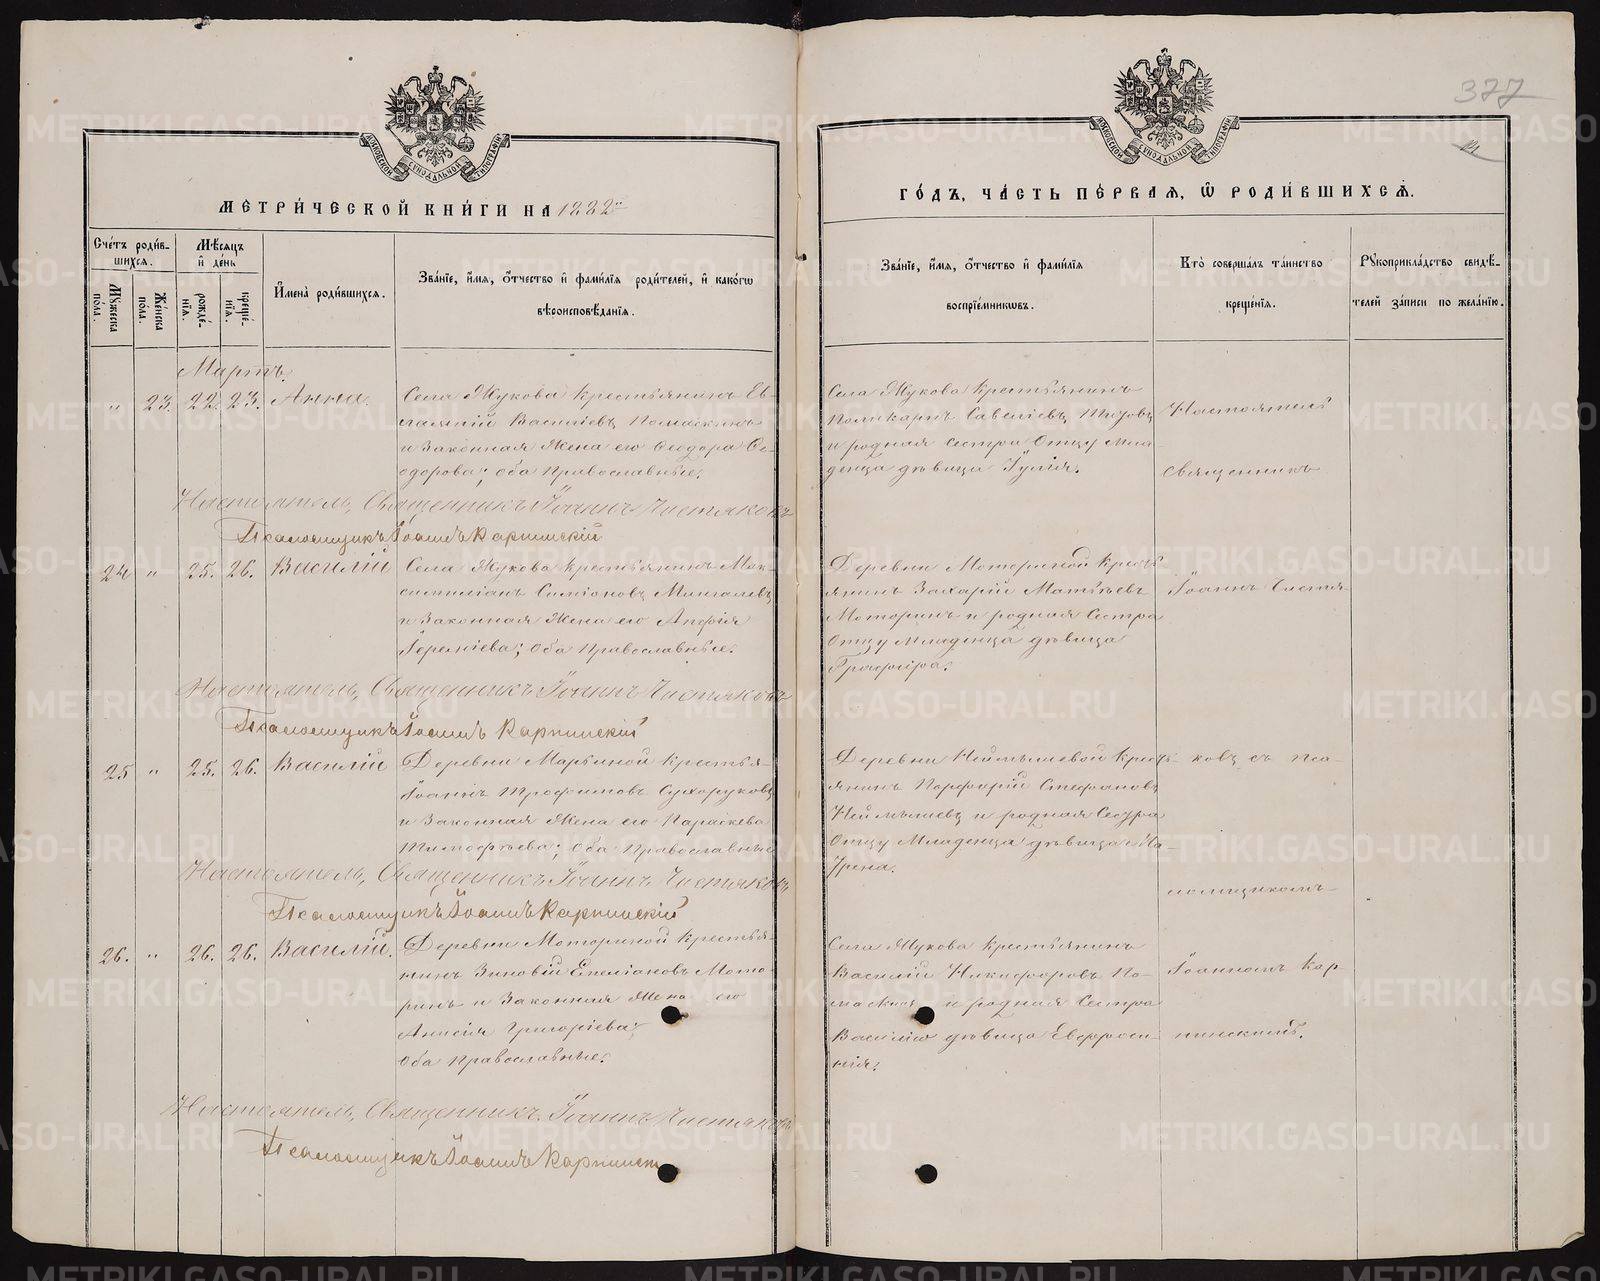 377
МЕТРИ́ЧЕСКОЙ КНИ́ГИ НА 1882й
ГО́ДЪ, ЧА́СТЬ ПЕ́РВАЯ, Ѿ РОДИ́ВШИХСѦ.
Сче́тъ роди́в-
шихсѧ.
Мꙋжеска
по́ла.
Же́нска
по́ла.
Мѣ́сѧцъ
и҆ де́нь
рожде́-
нїѧ.
креще́-
нїѧ.
И҆мена̀ роди́вшихсѧ.
Зва́нїе, и҆́мѧ, ѻ҆́тчество и҆ фами́лїѧ роди́телей, и҆ како́гѡ
вѣроисповѣ́данїѧ.
Зва́нїе, и҆́мѧ, ѻ҆́тчество и҆ фами́лїѧ
воспрїе́мникѡвъ.
Кто̀ соверша́лъ та́инство
креще́нїѧ.
Рꙋкоприкла́дство свидѣ́-
телей за́писи по жела́нїю.
Мартъ.
" 23. 22. 23. Анна.
Села Жукова крестьянинъ Ев-
лампій Василіевъ Помаскинъ
и законная жена его Ѳеодора Ѳе-
одорова; оба Православные.
Села Жукова крестьянинъ
Поликарпъ Савеліевъ Титовъ
и родная сестра отцу мла-
денца дѣвица Іулія.
Настоятель
священникъ
Настоятель, Священникъ Іоаннъ Чистяковъ
Псаломщикъ Іоаннъ Карпинскій
24 " 25. 26. Василій
Села Жукова крестьянинъ Мак-
симиліанъ Симеоновъ Мингалевъ
и законная жена его Анфія
Гереміева; оба Православные.
Деревни Моториной Кресть-
янинъ Захарій Матѳѣевъ
Моторинъ и родная сестра
отцу младенца дѣвица
Глафира.
Іоаннъ Чистя-
Настоятель, Священникъ Іоаннъ Чистяковъ
Псаломщикъ Іоаннъ Карпинскій
25 " 25. 26. Василій
Деревни Марьиной крестья-
Іоаннъ Трофимовъ Сухоруковъ
и законная жена его Параскева
Тимоѳѣева; оба Православные
Деревни Неймышевой Кресть-
янинъ Порфирій Стефановъ
Неймышевъ и родная Сестра
отцу младенца дѣвица Ма-
ковъ съ пса-
ломщикомъ
Настоятель, Священникъ Іоаннъ Чистяковъ
Псаломщикъ Іоаннъ Карпинскій
26. " 26. 26. Василій.
Деревни Моториной крестья-
нинъ Зиновій Емеліановъ Мото-
ринъ и законная жена его
Анисія Григоріева;
оба Православные.
Села Жукова крестьянинъ
Василій Никифоровъ По-
маскинъ и родная Сестра
Василію дѣвица Евфроси-
нія.
Іоанномъ Кар-
пинскимъ.
Настоятель, Священникъ Іоаннъ Чистяковъ
Псаломщикъ Іоаннъ Карпинскі